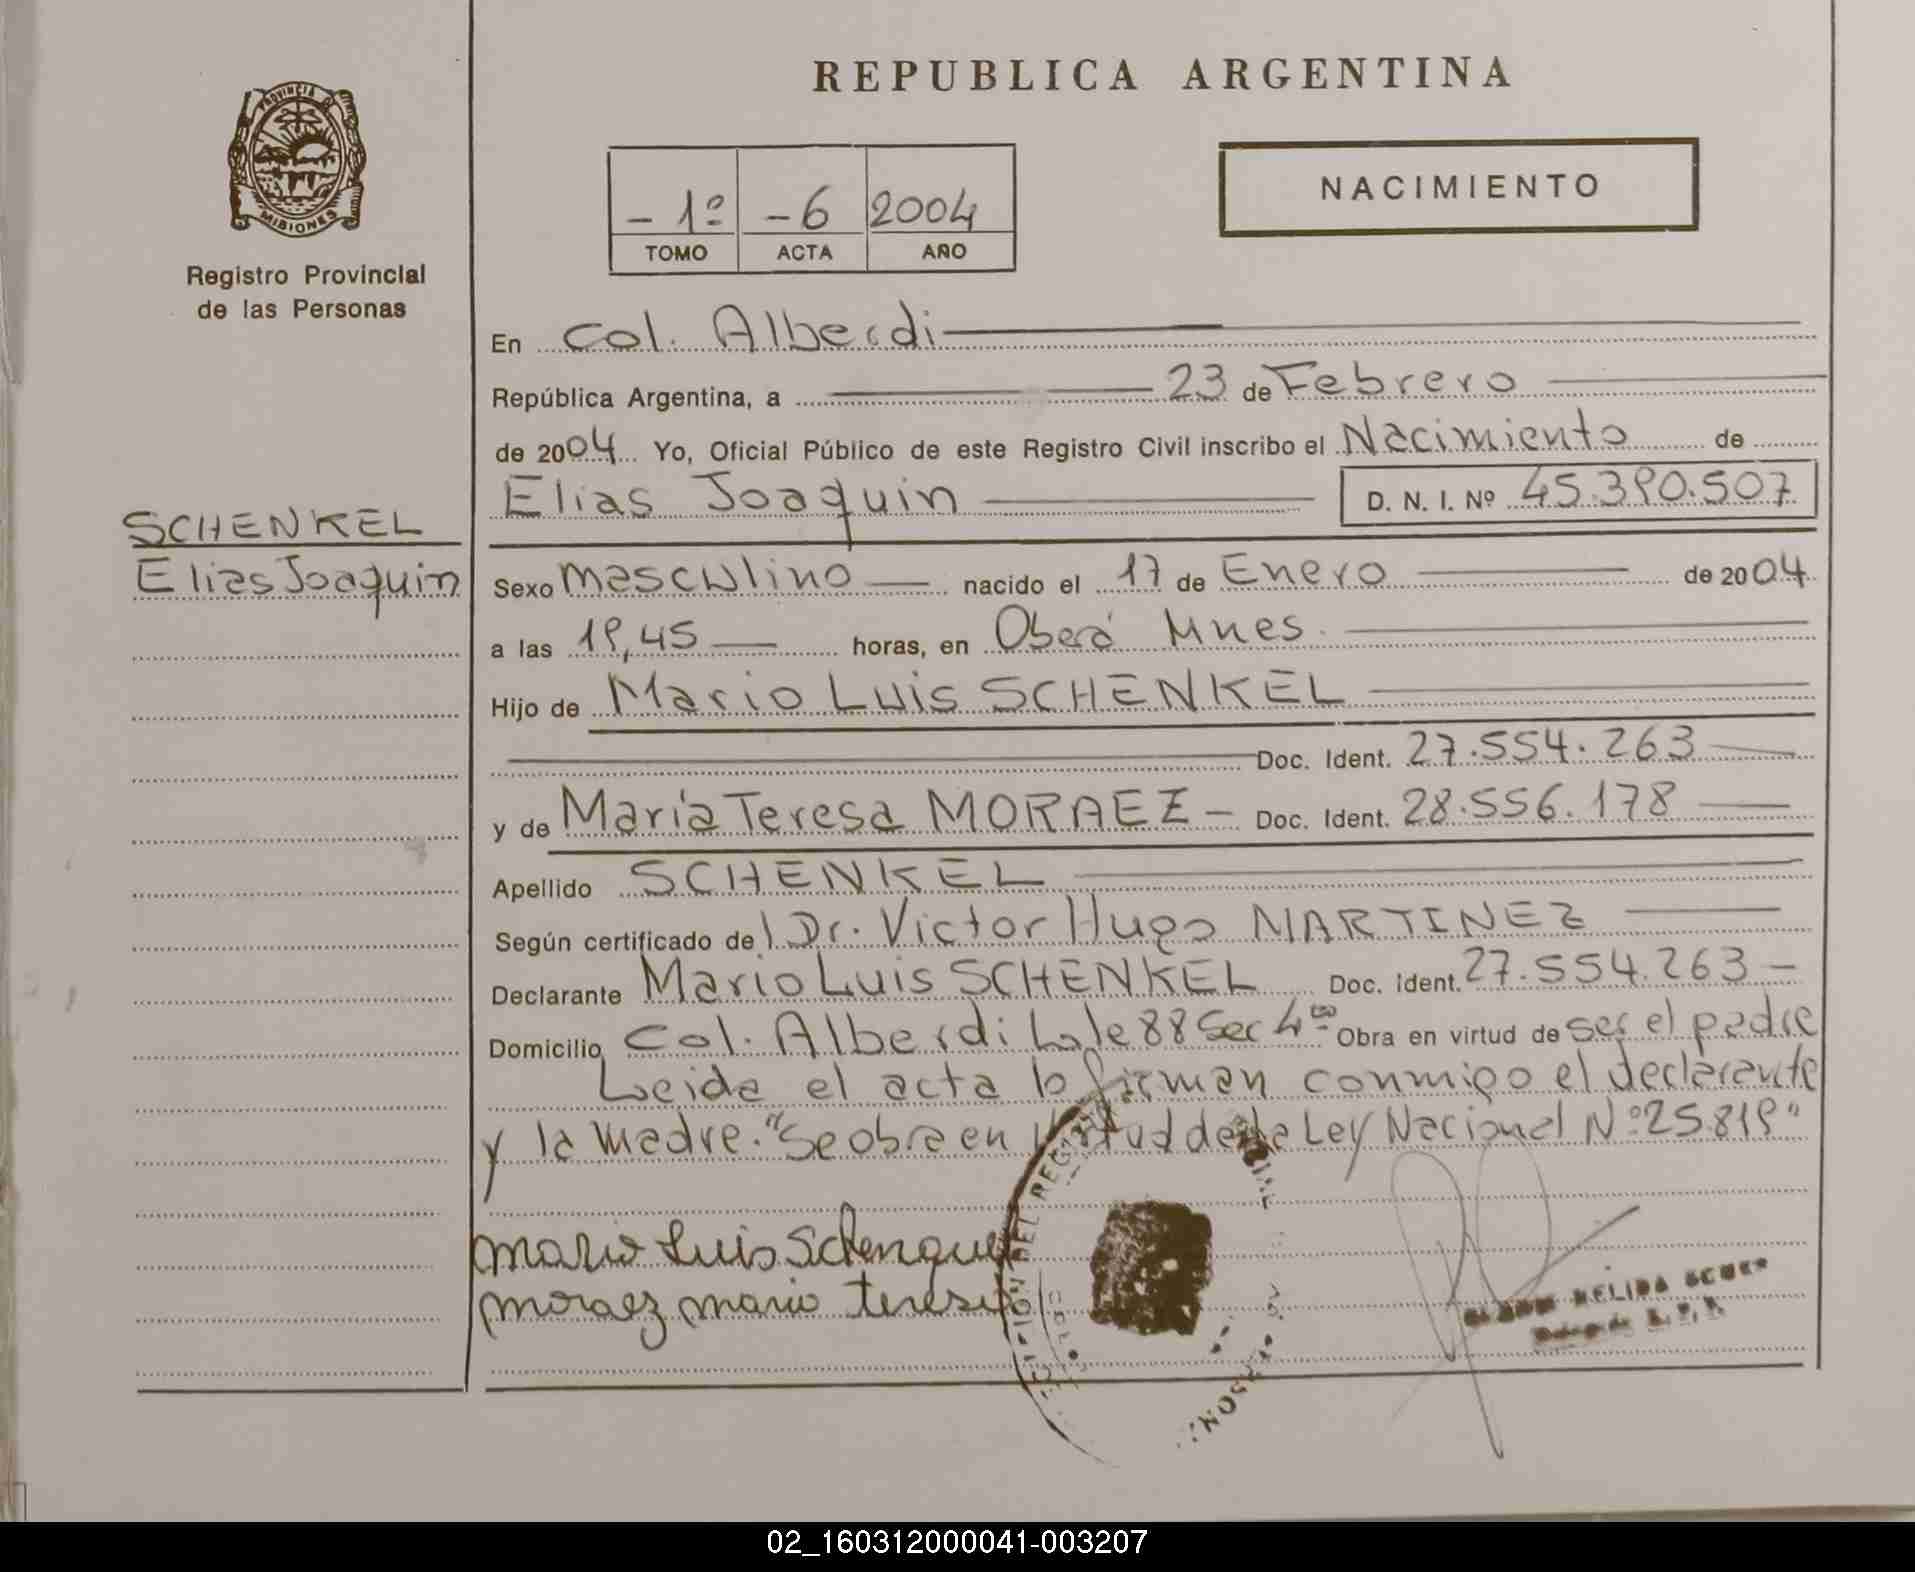 REPUBLICA ARGENTINA
PROVINCIA DE
MISIONES
Registro Provincial
de las Personas
- 1º - 6 2004
TOMO ACTA AÑO
NACIMIENTO
En Col. Alberdi
República Argentina, a 23 de Febrero
de 2004 Yo, Oficial Público de este Registro Civil inscribo el Nacimiento de
Elias Joaquin D. N. I. Nº 45.390.507
SCHENKEL
Elias Joaquin
Sexo masculino nacido el 17 de Enero de 2004
a las 19,45 horas, en Oberá Mnes.
Hijo de Mario Luis SCHENKEL
Doc. Ident. 27.554.263
y de María Teresa MORAEZ - Doc. Ident. 28.556.178
Apellido SCHENKEL
Según certificado del Dr. Victor Hugo MARTINEZ
Declarante Mario Luis SCHENKEL Doc. Ident. 27.554.263 -
Domicilio Col. Alberdi Lote 88 Sec 4ta Obra en virtud de ser el padre
Leida el acta la firman conmigo el declarante
y la madre. "Se obra en virtud de la Ley Nacional Nº 25.819"
Mario Luis Schenquel
moraez maria teresa
NELIDA
02_160312000041-003207